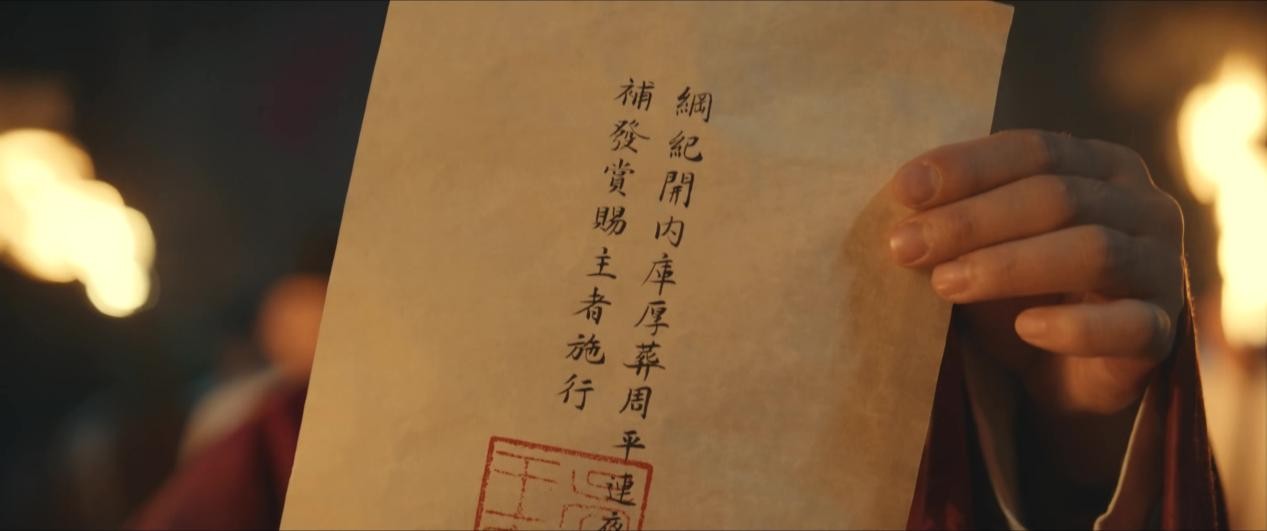 綱紀開內庫厚葬周平連夜
補發賞賜主者施行